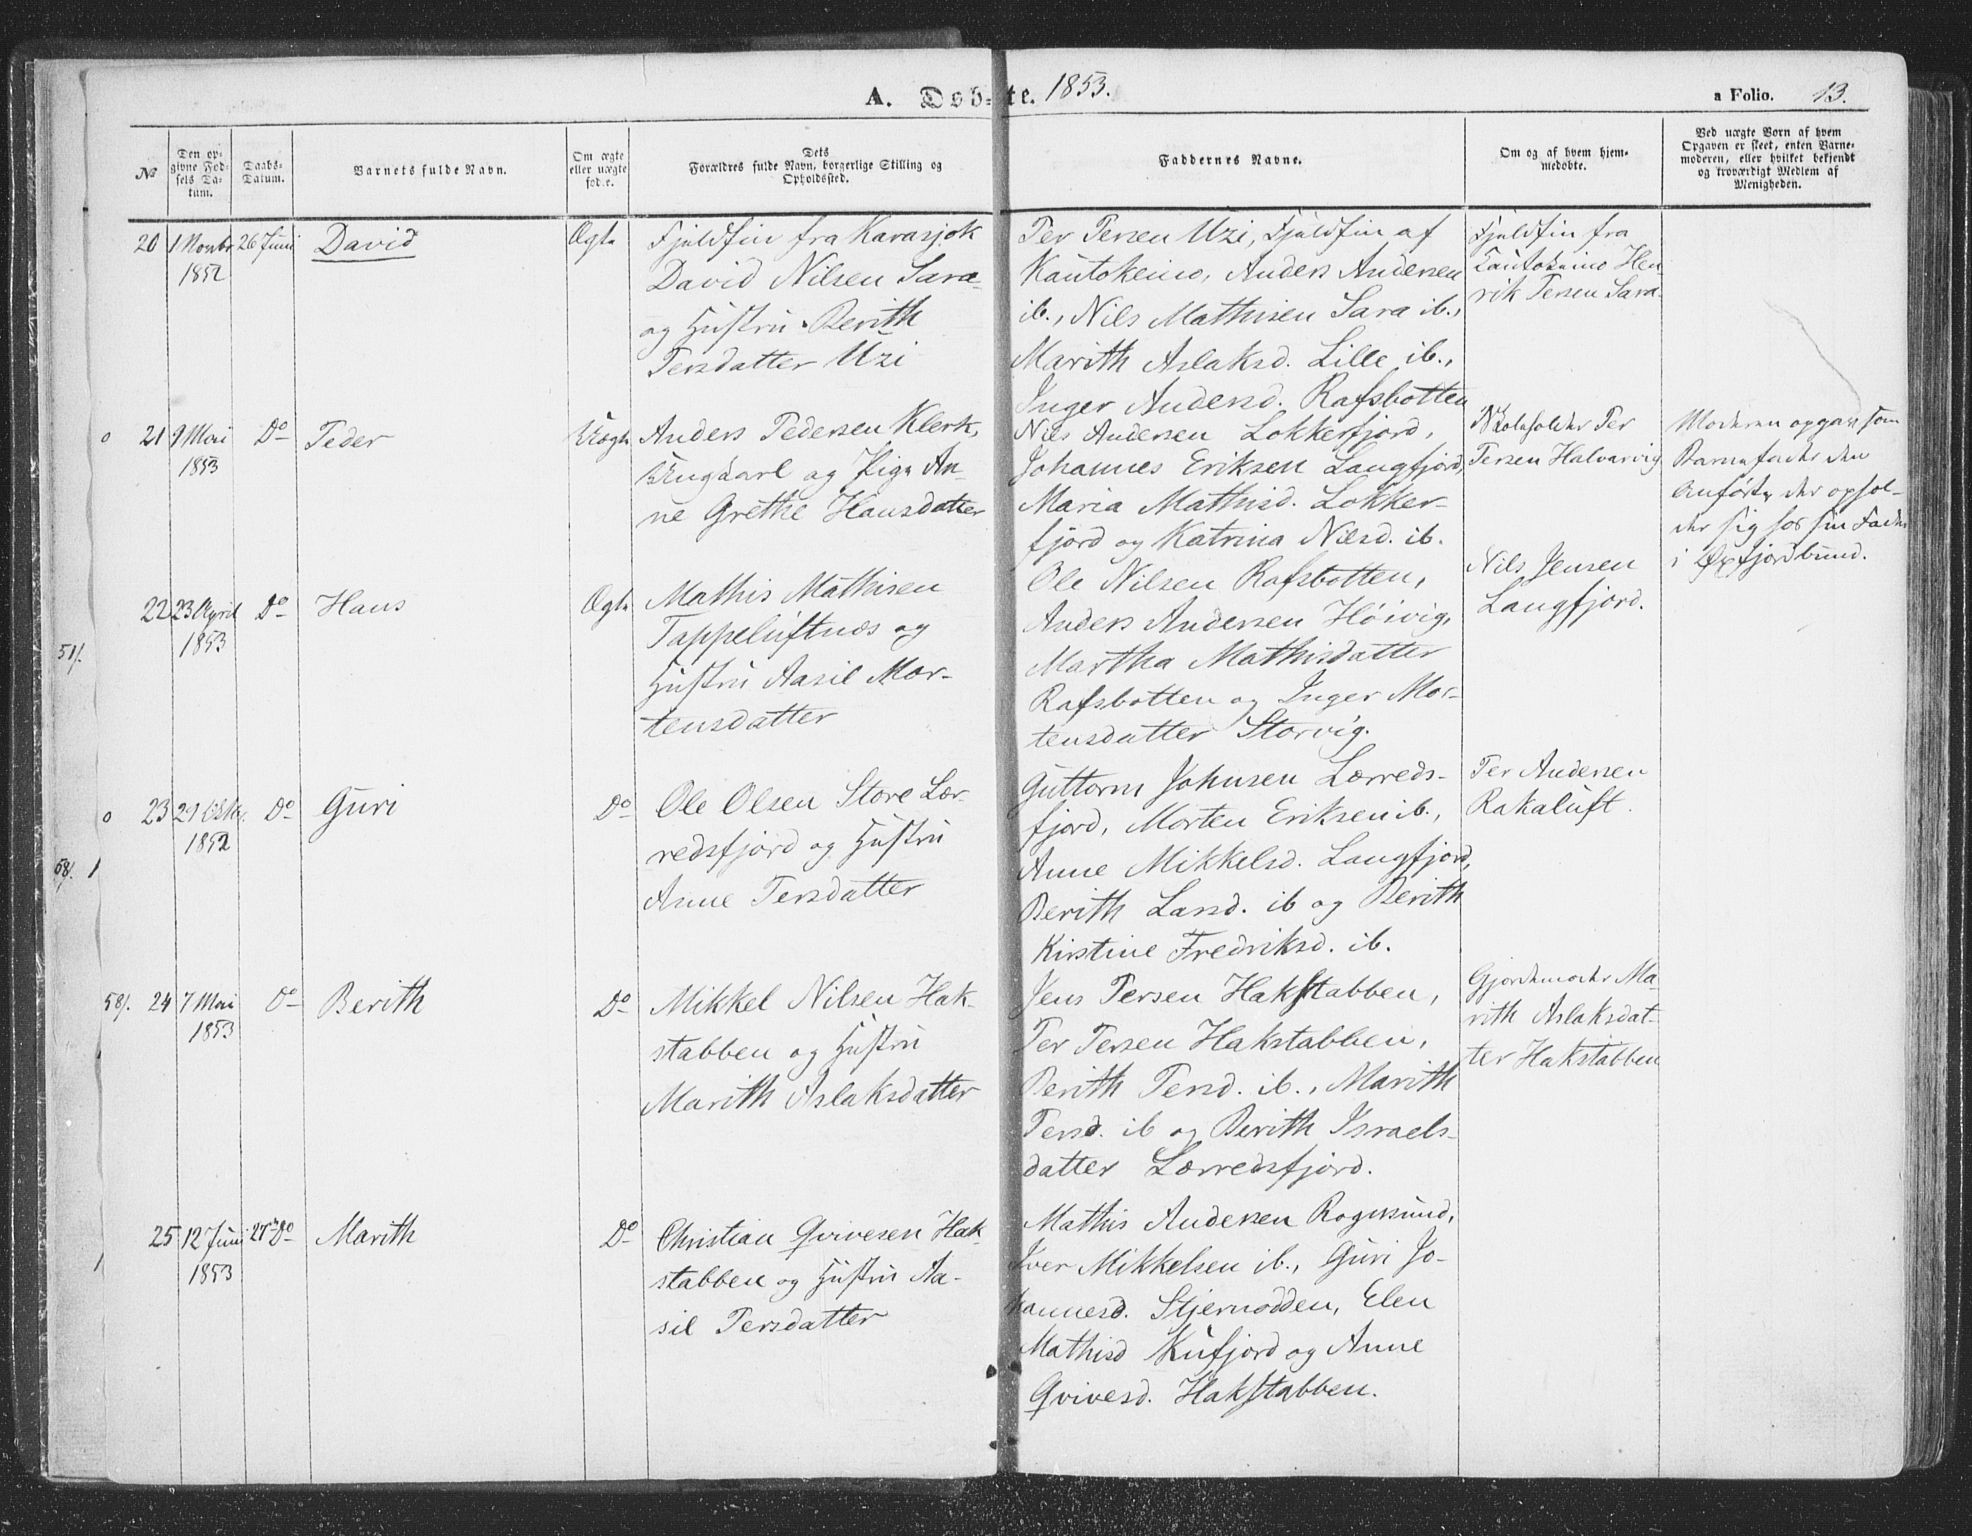 A. Døbte. 1853.
a Folio. 13.
No
Den opgivne Fødsels Datum.
Daabs-Datum.
Barnets fulde Navn.
Om ægte eller uægte føde.
Dets Forældres fulde Navn, borgerlige Stilling og Opholdssted.
Faddernes Navne.
Om og af hvem hjemmedøbte.
Ved uægte Børn af hvem Opgaven er skeet, enten Barnemoderen, eller hvilket bekjendt og troværdigt Medlem af Menigheden.
20 1 Novbr 1852 26 Juni David Ægte
Fjeldfin fra Karasjok
David Nilsen Sara
og Hustru Berith
Persdatter Uzi
Per Persen Uzi, Fjeldfin af
Kautokeino, Anders Andersen
ib., Nils Mathisen Sara ib.,
Marith Aslaksd. Lille ib.,
Inger Andersd. Rafsbotten
Fjeldfin fra
Kautokeino Hen-
rik Persen Sara.
o 21 9 Mai 1853 Do Peder Uægte
Anders Pedersen Klerk,
Ungkarl og Pige An-
ne Grethe Hansdatter
Nils Andersen Lokkerfjord,
Johannes Eriksen Langfjord,
Maria Mathisd. Lokker-
fjord og Katrina Nilsd. ib.
Skoleholder Per
Persen Halvarvig
Moderen opgav som
Barnefader den
Anførte, der ophol-
der sig hos sin Fader
i Øxfjordbund.
51/.
22 23 April 1853 Do Hans Ægte
Mathis Mathisen
Tappeluftnæs og
Hustru Aasil Mor-
tensdatter
Ole Nilsen Rafsbotten,
Anders Andersen Høivig,
Martha Mathisdatter
Rafsbotten og Inger Mor-
tensdatter Storvig.
Nils Jensen
Langfjord.
o 23 1852 Do Guri Do
58/. 1
Ole Olsen Store Lær-
redsfjord og Hustru
Anne Persdatter
Guttorm Johnsen Lærreds-
fjord, Morten Eriksen ib.,
Anne Mikkelsd. Langfjord,
Berith Larsd. ib og Berith
Kirstine Fredriksd. ib.
Per Andersen
Rakaluft.
58/. 24 7 Mai 1853 Do Berith Do
Mikkel Nilsen Hak-
stabben og Hustru
Marith Aslaksdatter
Jens Persen Hakstabben,
Per Persen Hakstabben,
Berith Persd. ib., Marith
Persd. ib og Berith Israels-
datter Lærredsfjord.
Gjordemoder Ma-
rith Aslaksdat-
ter Hakstabben
1
25 12 Juni 1853 27 Do Marith Do
Christian Qvivesen Hak-
stabben og Hustru Aa-
sil Persdatter
Mathis Andersen Rognsund,
Iver Mikkelsen ib., Guri Jo-
hannesd. Stjernodden, Elen
Mathisd Kufjord og Anne
Qvivesd. Hakstabben.